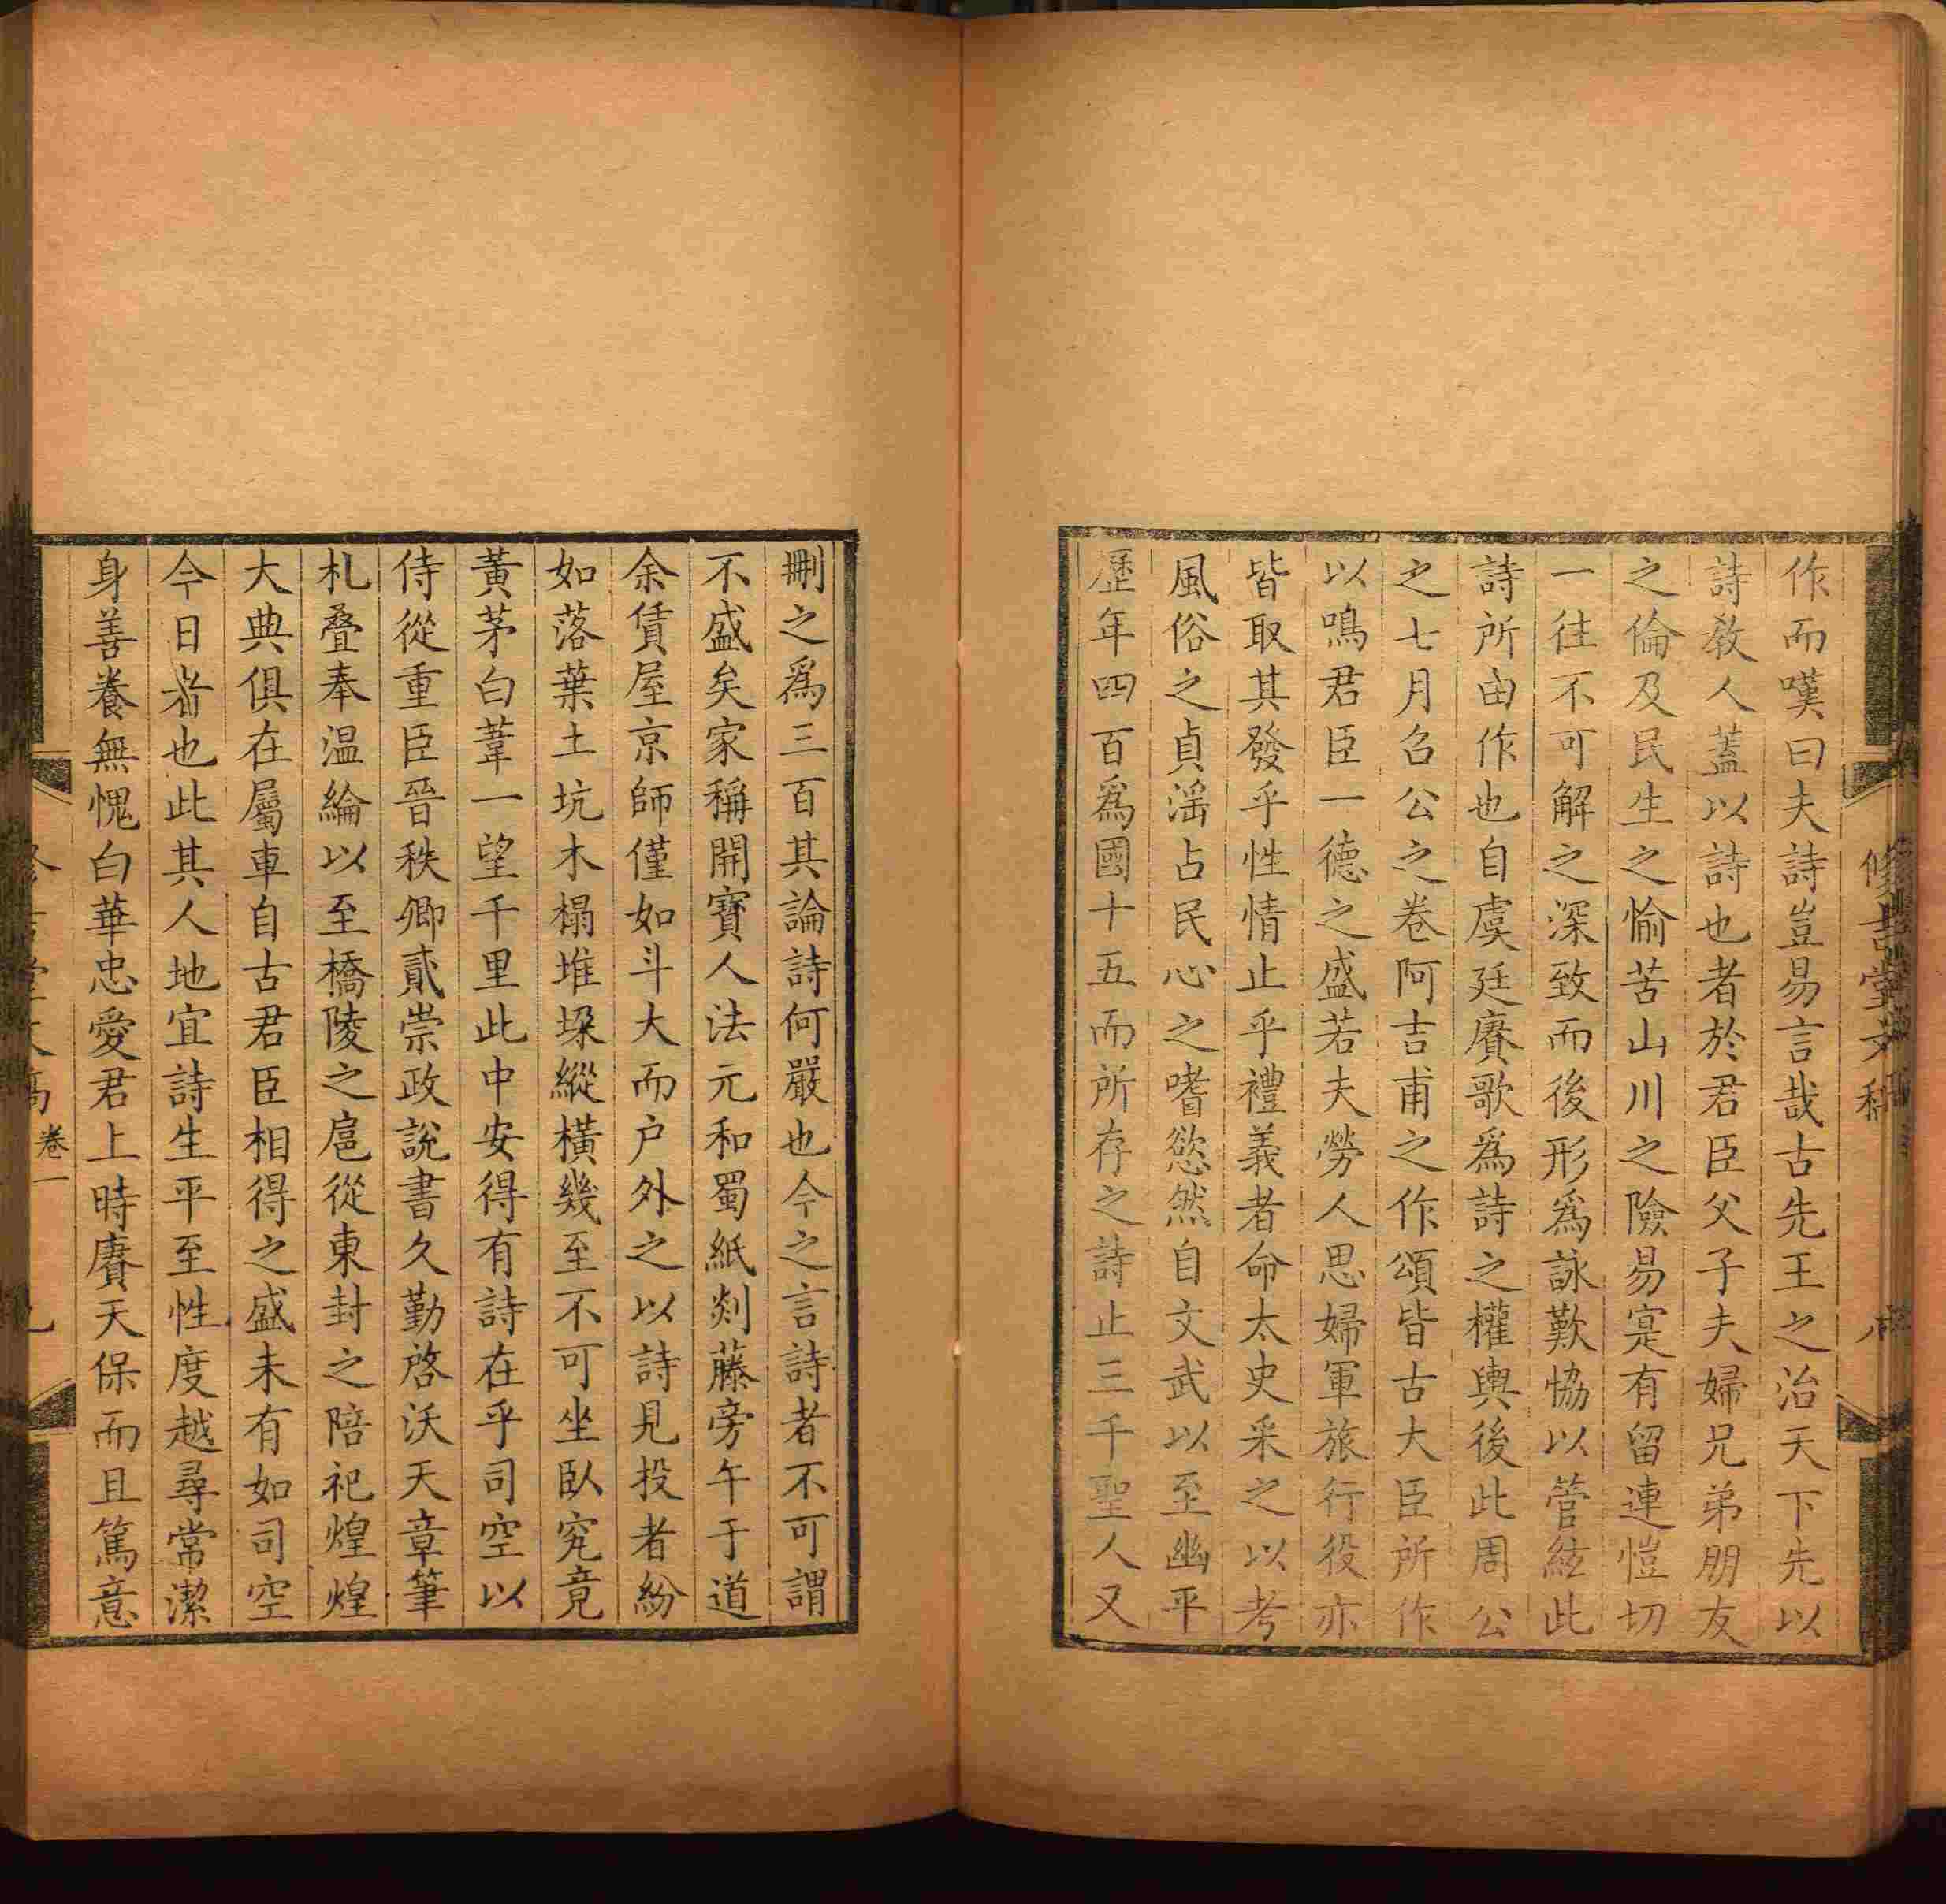 作而嘆曰夫詩豈易言哉古先王之治天下先以
詩教人蓋以詩也者於君臣父子夫婦兄弟朋友
之倫及民生之愉苦山川之險易寔有留連愷切
一往不可解之深致而後形爲詠歎恊以管絃此
詩所由作也自虞廷賡歌爲詩之權輿後此周公
之七月召公之卷阿吉甫之作頌皆古大臣所作
以鳴君臣一德之盛若夫勞人思婦軍旅行役亦
皆取其發乎性情止乎禮義者命太史采之以考
風俗之貞滛占民心之嗜慾然自文武以至幽平
歷年四百爲國十五而所存之詩止三千聖人又
刪之爲三百其論詩何嚴也今之言詩者不可謂
不盛矣家稱開寶人法元和蜀紙剡藤旁午于道
余賃屋京師僅如斗大而户外之以詩見投者紛
如落葉土坑木榻堆垜縱橫幾至不可坐臥究竟
黃茅白葦一望千里此中安得有詩在乎司空以
侍從重臣晉秩卿貳崇政說書久勤啓沃天章筆
札疊奉温綸以至橋陵之扈從東封之陪祀煌煌
大典俱在屬車自古君臣相得之盛未有如司空
今日者也此其人地宜詩生平至性度越尋常潔
身善養無愧白華忠愛君上時賡天保而且篤意
卷一